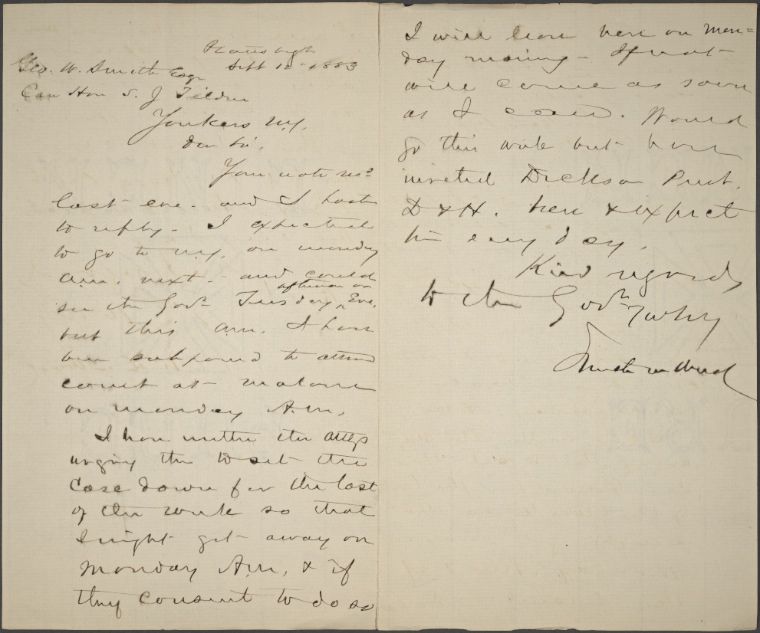 Plattsburgh
Sept 12 - 1883
Geo. W. Smith Esq
Care Hon S. J. Tilden
Yonkers N.Y.
Dear Sir,
Your note recd
last eve. and I hasten
to reply. I expected
to go to N.Y. on monday
a.m. next - and could
see the Govr. Tuesday afternoon or Eve.
but this a.m. I have
been subpoened to attend
court at malone
on monday A.M.
I have written the attys
urging them to set the
Case down for the last
of the week so that
I might get away on
Monday A.M. & if
they consent to do so
I will leave here on Mon=
day morning - If not
will come as soon
as I can. Would
go this week but have
invited Dickson Prest.
D & H. here & expect
him every day.
Kind regards
to the Govr.